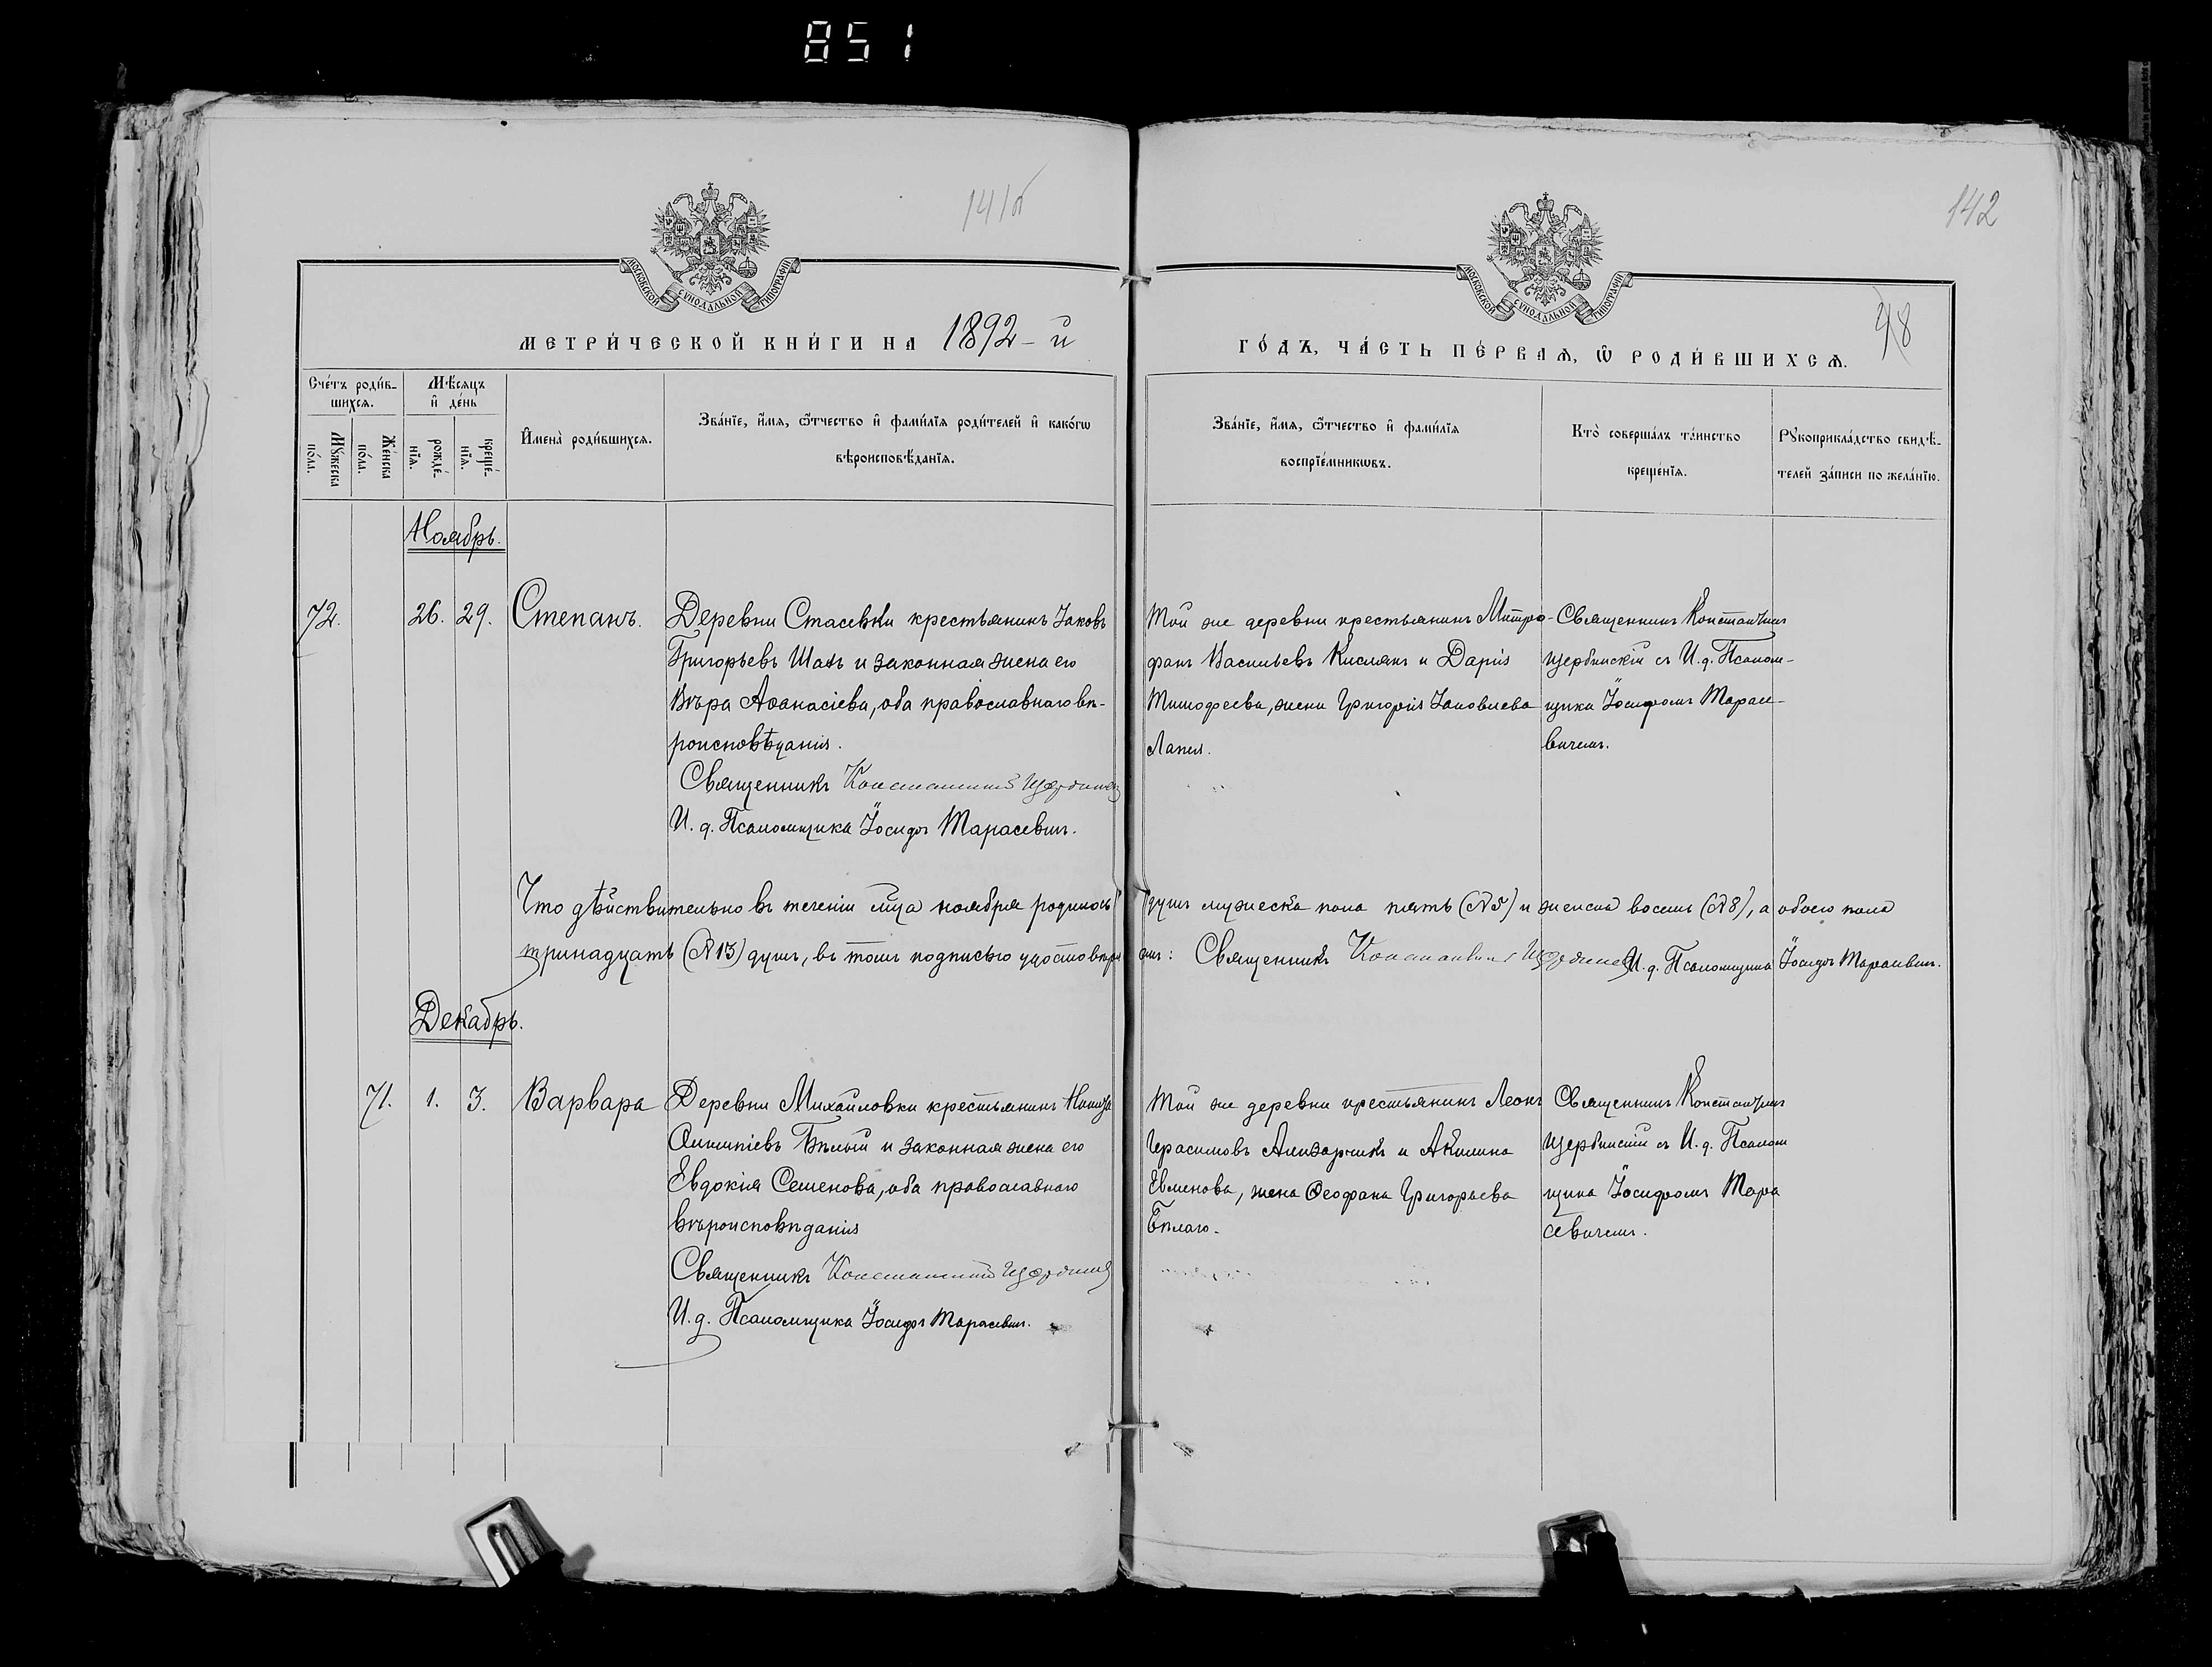 851
141об
142
МОСКОВСКОЙ СѴНОДАЛЬНОЙ ТИПОГРАФІИ
МОСКОВСКОЙ СѴНОДАЛЬНОЙ ТИПОГРАФІИ
МЕТРИ́ЧЕСКОЙ КНИ́ГИ НА 1892-й
ГО́ДЪ, ЧА́СТЬ ПЕ́РВАѦ, Ѿ РОДИ́ВШИХСѦ.
48
Сче́тъ роди́в-
шихсѧ.
Мꙋ́жеска
по́ла.
Же́нска
по́ла.
Мѣ́сѧцъ
и҆ де́нь
рожде́-
нїѧ.
креще́-
нїѧ.
И҆мена̀ роди́вшихсѧ.
Зва́нїе, и҆́мѧ, ѻ҆́тчество и҆ фами́лїѧ роди́телей и҆ како́гѡ
вѣроисповѣ́данїѧ.
Зва́нїе, и҆́мѧ, ѻ҆́тчество и҆ фами́лїѧ
воспрїе́мникѡвъ.
Кто̀ соверша́лъ та́инство
креще́нїѧ.
Рꙋкоприкла́дство свидѣ́-
телей за́писи по жела́нїю.
Ноябрь.
72.
26. 29.
Степанъ.
Деревни Стасевки крестьянинъ Іаковъ
Григорьевъ Шахъ и законная жена его
Вѣра Аѳанасіева, оба православнаго вѣ-
роисповѣданія.
Священникъ Константинъ Щербинскій
И. д. Псаломщика Іосифъ Тарасевичъ.
Той же деревни крестьянинъ Митро-
фанъ Васильевъ Кислякъ и Дарія
Тимофеева, жена Григорія Іаковлева
Лапы.
Священникъ Константинъ
Щербинскій съ И. д. Псалом-
щика Іосифомъ Тарасе-
вичемъ.
Что дѣйствительно въ теченіи м-ца ноября родилось душъ мужеска пола пять (№ 5) и женска восемь (№ 8), а обоего пола
тринадцать (№ 13) душъ, въ томъ подписью удостовѣряемъ: Священникъ Константинъ Щербинскій И. д. Псаломщика Іосифъ Тарасевичъ.
Декабрь.
71.
1. 3.
Варвара
Деревни Михайловки крестьянинъ
Олимпіевъ Бѣлый и законная жена его
Евдокія Семенова, оба православнаго
вѣроисповѣданія
Священникъ Константинъ Щербинскій
И. д. Псаломщика Іосифъ Тарасевичъ.
Той же деревни крестьянинъ Леонъ
Герасимовъ и Акилина
Евменова, жена Ѳеофана Григорьева
Бѣлаго.
Священникъ Константинъ
Щербинскій съ И. д. Псалом
щика Іосифомъ Тара
севичемъ.